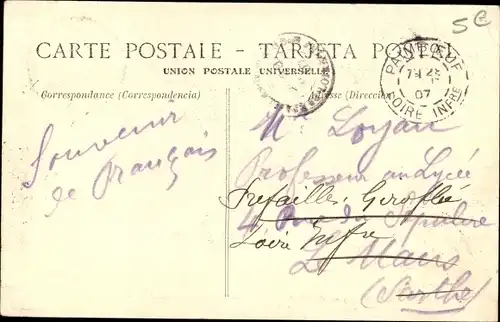 5€
CARTE POSTALE - TARJETA POSTAL
UNION POSTALE UNIVERSELLE
Correspondance (Correspondencia)
Adresse (Direccion)
PAIMBŒUF
07
LOIRE INFRE
Souvenir
de français
Mr Loyau
Professeur au Lycée
Prefailles. Giroflée
4 Rue du Sépulcre
Loire Infre
Le Mans
(Sarthe)